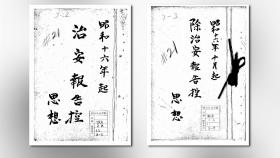 昭和十六年起
治安報告控
思想
#21
昭和十六年十月起
除治安報告控
思想
#21